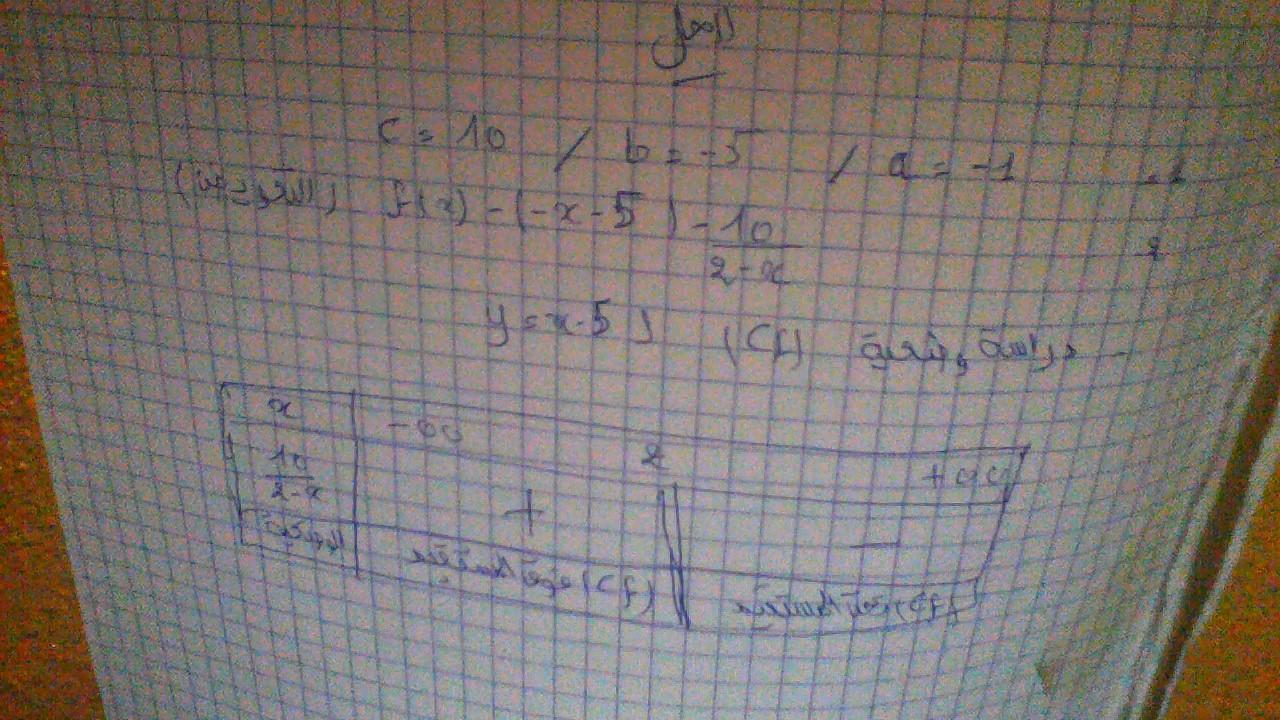 الحل
1- a = -1 / b = -5 / c = 10
2 f(x) - (-x-5) = 10/(2-x)
- دراسة وضعية (Cf) y = x-5
x -∞ 2 +∞
10/(2-x) + -
الوضعية (Cf) فوق المستقيم (Cf) تحت المستقيم